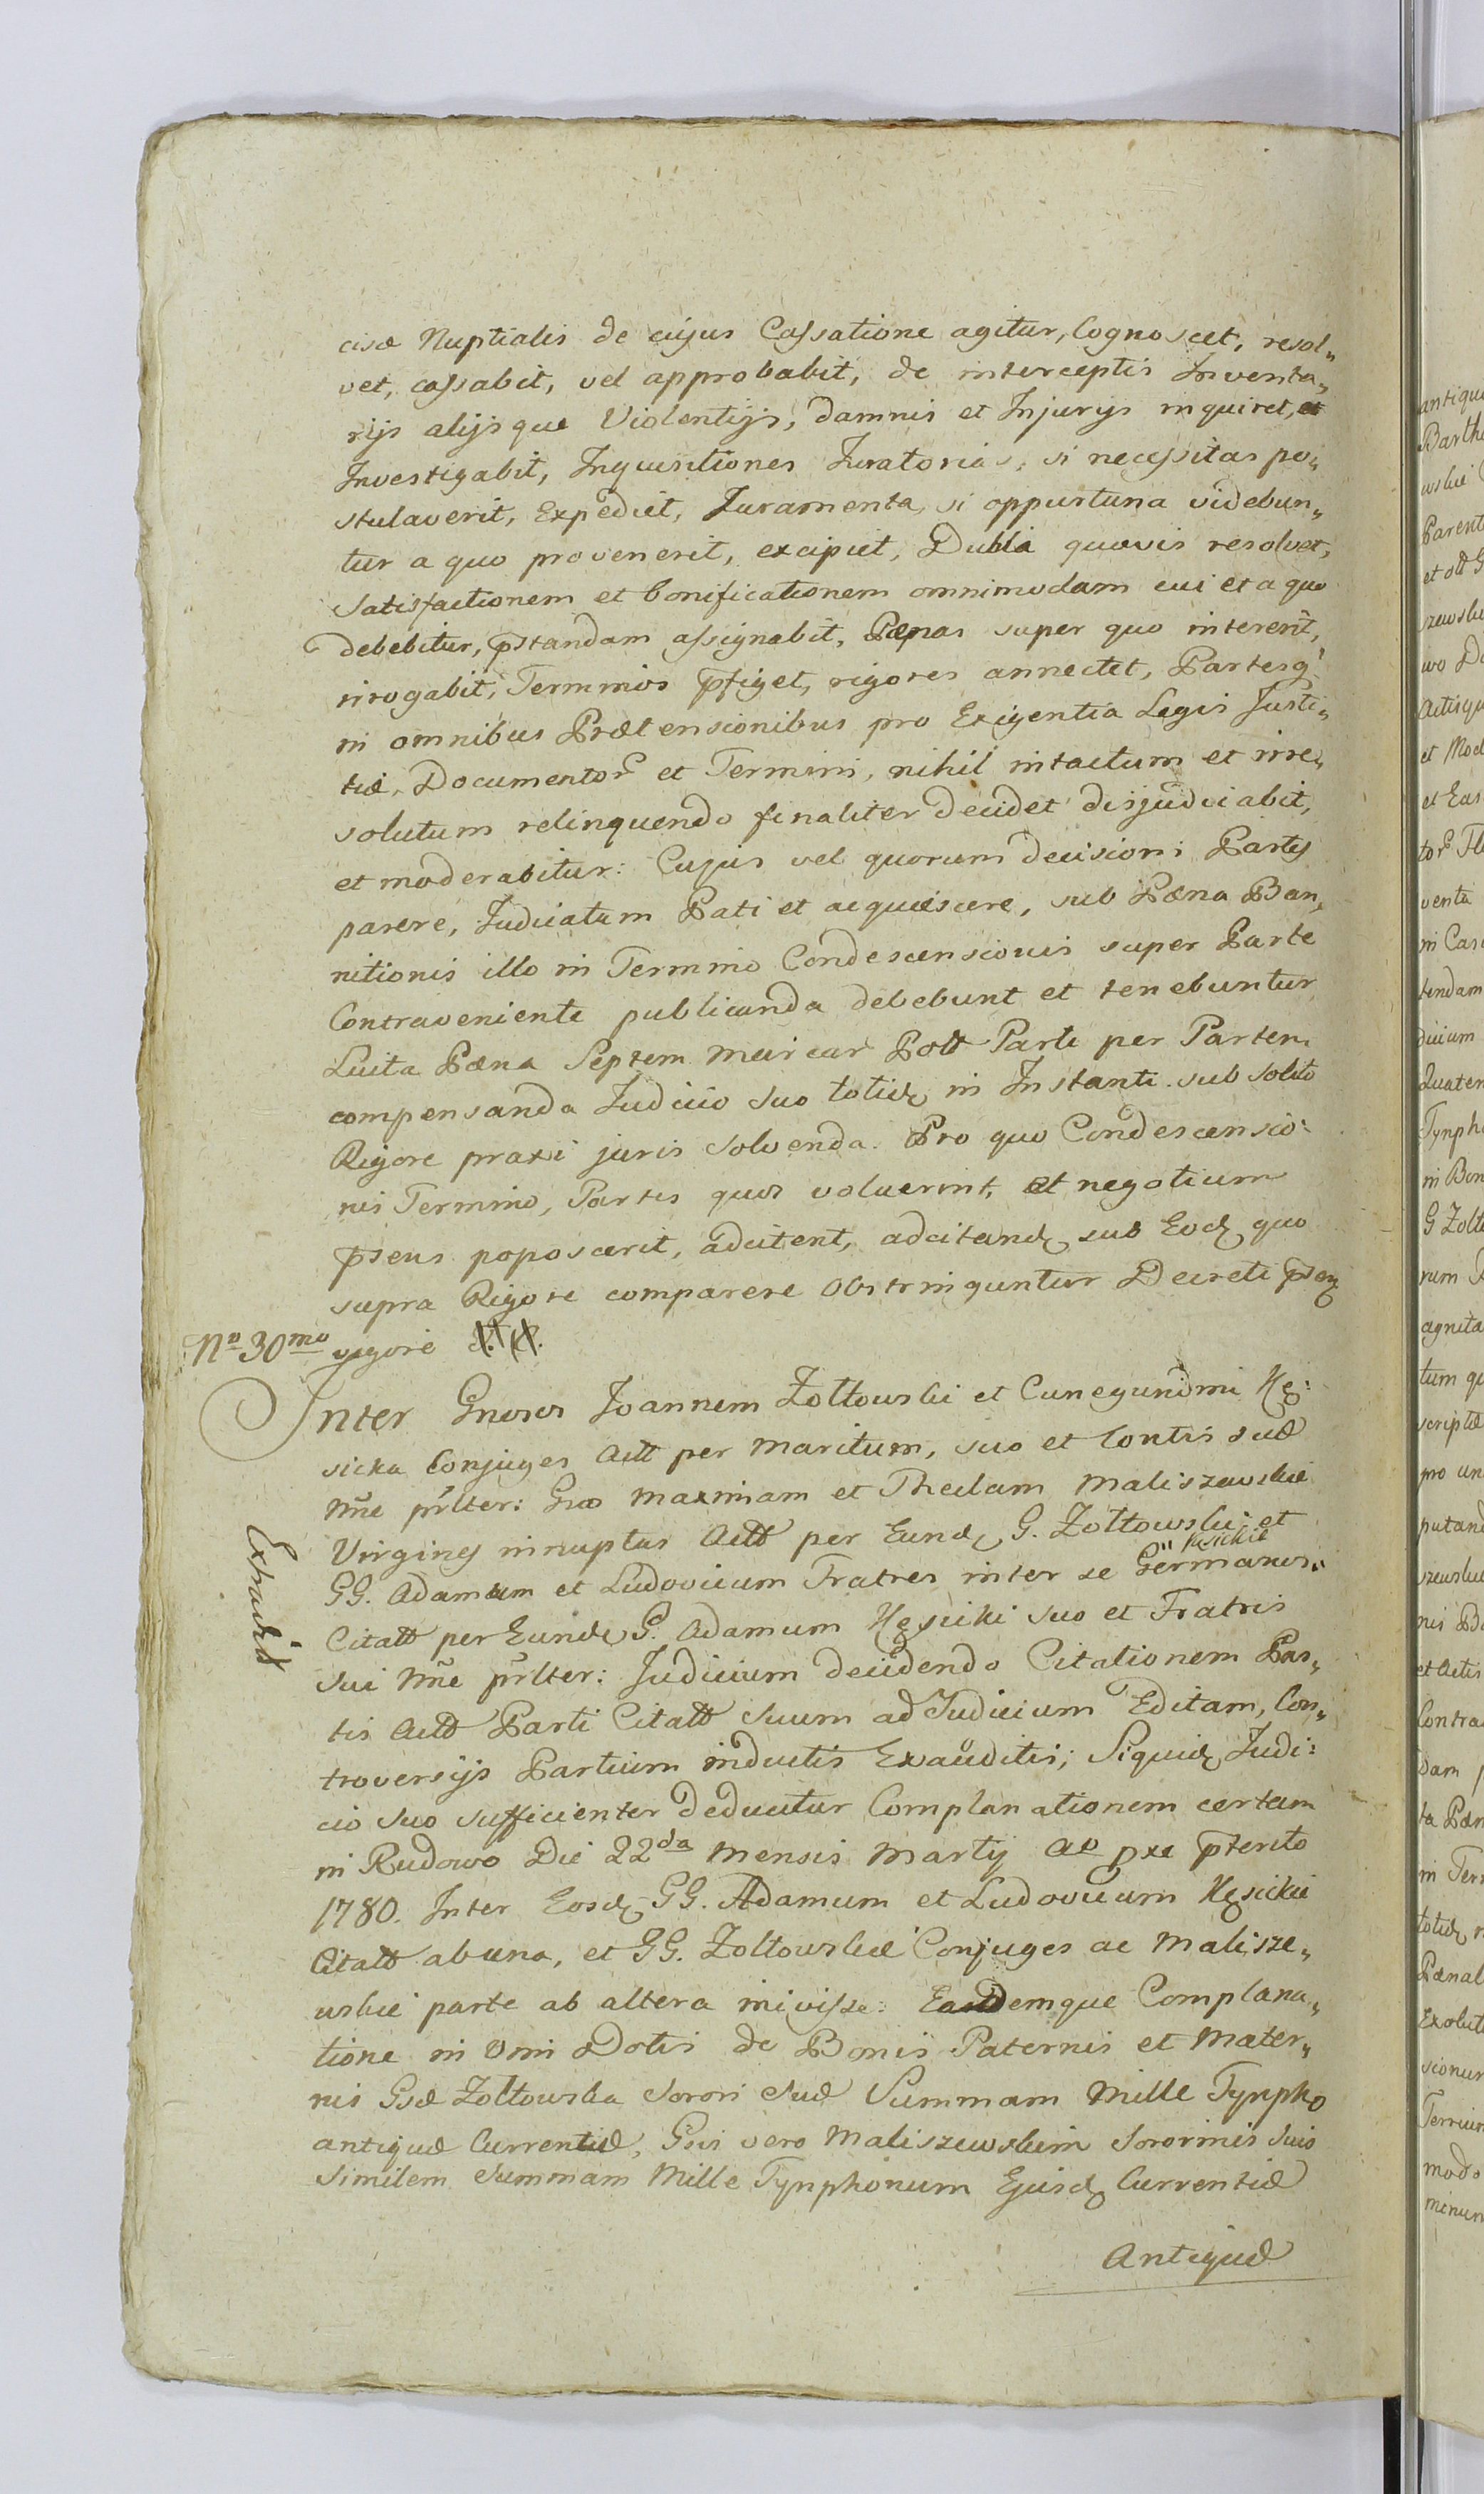 cisæ Nuptialis de cujus Cassatione agitur, Cognoscet, resol„
vet, cassabit, vel approbabit, de interceptis Inventa„
rijs alijsque Violentijs, damnis et Injurijs inquiret, et
Investigabit, Inquisitiones Juratorias, si necessitas po„
stulaverit, Expediet, Juramenta, si oppurtuna videbun„
tur a quo provenerit, excipiet, Dubia quævis resolvet,
Satisfactionem et bonificationem omnimodam cui et a quo
debebitur, pstandam assignabit, Pænas super quo intererit,
irrogabit, Terminos pfiget, rigores annectet, Partesq
in omnibus Prætensionibus pro Exigentia Legis Justi„
tiæ, Documentor et Termini, nihil intactum et irre„
solutum relinquendo finaliter decidet disjudicabit,
et moderabitur: Cujus vel quorum decisioni Partes
parere, Judicatum Pati et acquiescere, sub Pæna Ban„
nitionis illo in Termino Condescensionis super Parte
Contraveniente publicanda debebunt et tenebuntur
Luita Pæna Septem Marcar Polł Parti per Partem
compensanda Judicio Suo totid in Instanti sub solito
Rigore praxi juris Solvenda. Pro quo Condescensio:
nis Termino, Partes quos voluerint, et negotium
psens poposcerit, adcitent, adcitand sub Eod quo
supra Rigore comparere Obstringuntur Decreti psen
No 30mo vigore
Inter Gnosos Joannem Zołtowski et Cunegundmi Kę:
sicka Conjuges Actt per Maritum, suo et Contis suæ
Nne prlter: Gnæ Maxmiam et Theclam Maliszewskie
Virgines innuptas Actt per Eund G. Zołtowski et
Kesickie
GG. Adamum et Ludovicum Fratres inter se Germanos„
Extradit
Citatt per Eund G. Adamum Kęsicki suo et Fratris
Sui Nne prlter: Judicium decidendo Citationem Par„
tis Actt Parti Citatt suum ad Judicium Editam, Con„
troversijs Partium inductis Exauditis; Siquid Judi:
cio Suo sufficienter deducitur Complanationem certam
in Rudowo Die 22da Mensis Martij Ao pxe pterito
1780. Inter Eosd GG. Adamum et Ludovicum Kęsickie
Citatt ab una, et GG. Zołtowskie Conjuges ac Malisze„
wskie parte ab altera inivisse: Eademque Complana„
tione in Vim Dotis de Bonis Paternis et Mater„
nis Gsæ Zołtowska Sorori Suæ Summam Mille Tympho
antiquæ Currentiæ, Gsis vero Maliszewskim Sororinis Suis
Similem Summam Mille Tymphonum Ejusd Currentiæ
Antiquæ